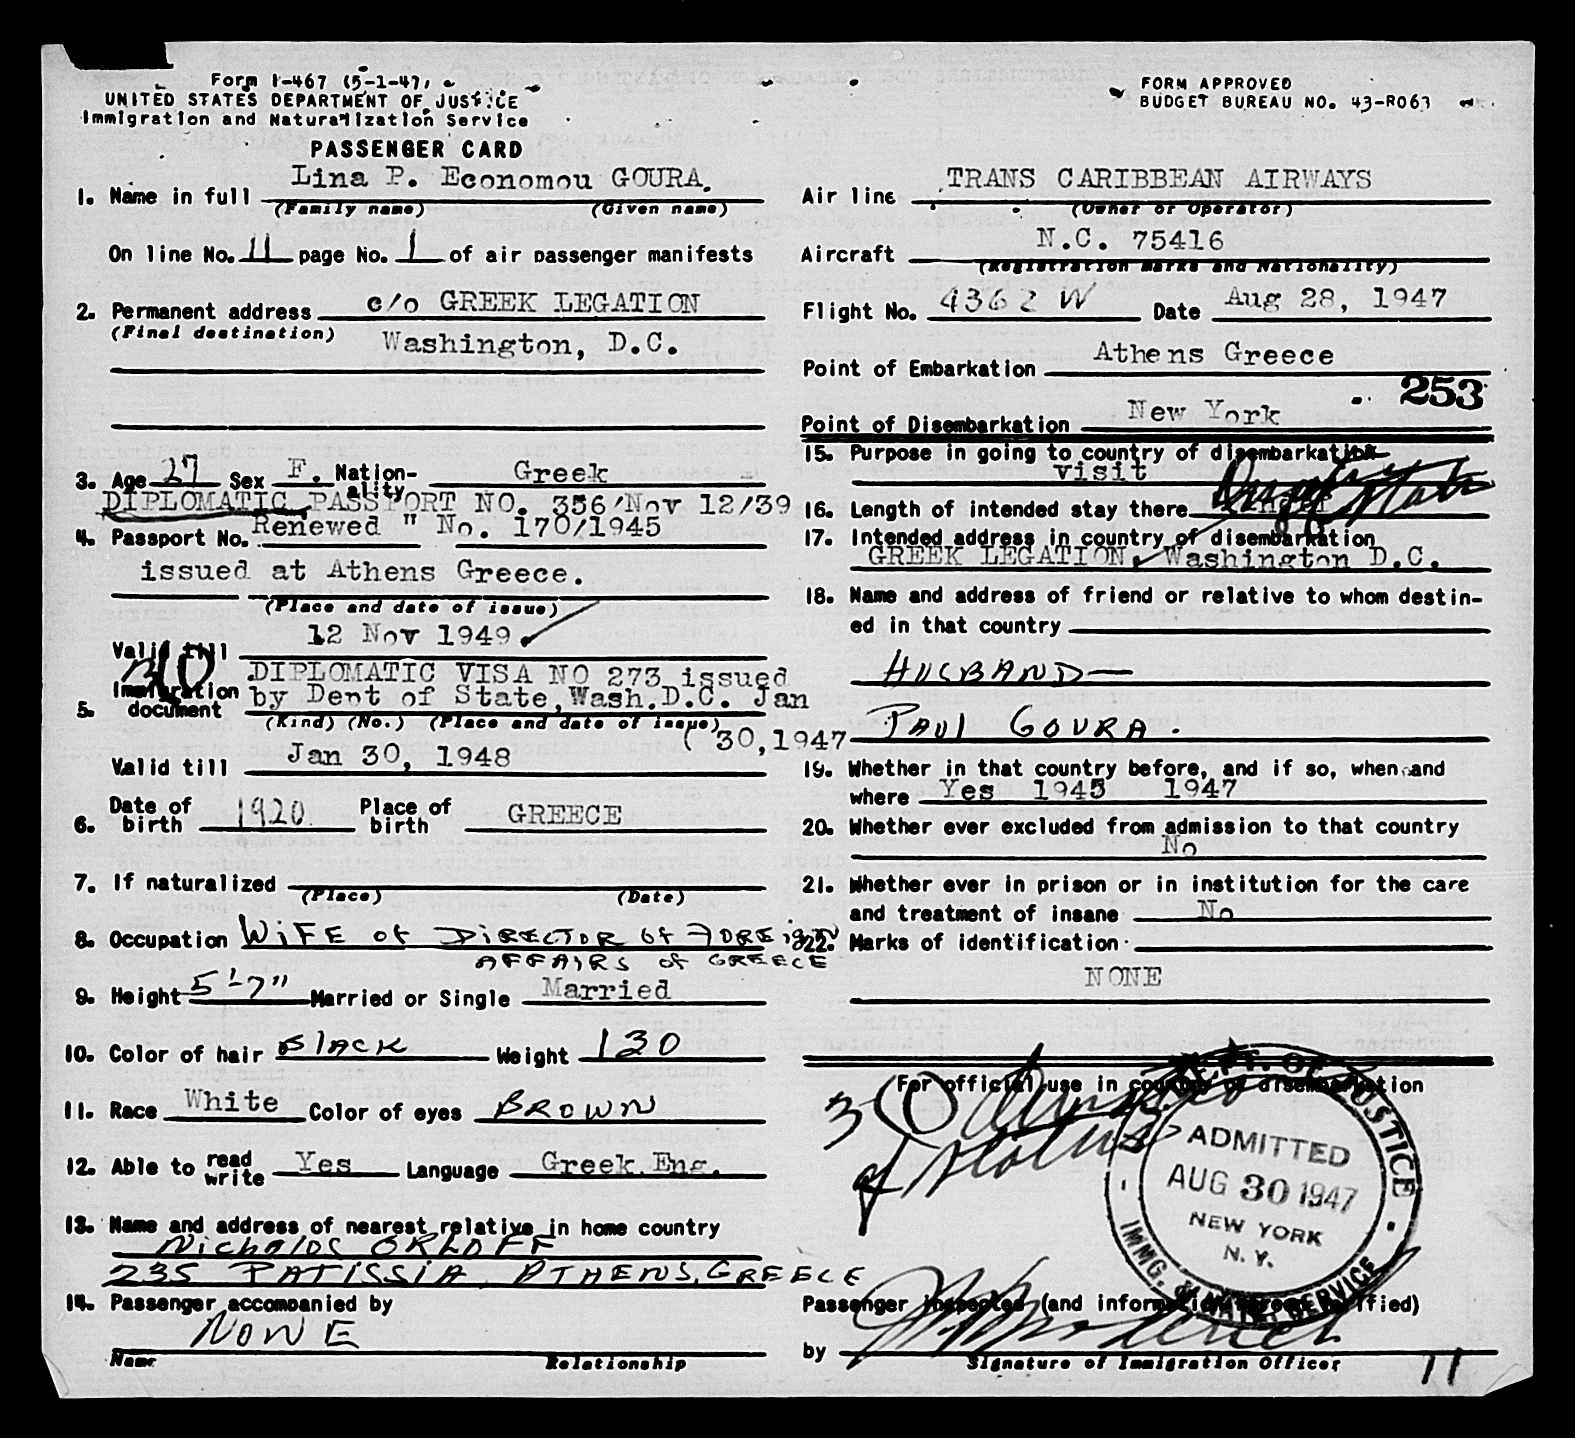 Form I-467 (5-1-47)
UNITED STATES DEPARTMENT OF JUSTICE
Immigration and Naturalization Service
PASSENGER CARD
FORM APPROVED
BUDGET BUREAU NO. 43-R063
1. Name in full Lina P. Economou GOURA.
(Family name) (Given name)
On line No. 11 page No. 1 of air passenger manifests
2. Permanent address c/o GREEK LEGATION
(Final destination) Washington, D.C.
3. Age 27 Sex F. Nation-ality Greek
DIPLOMATIC PASSPORT NO. 356/Nov 12/39
4. Passport No. Renewed " No. 170/1945
issued at Athens Greece.
(Place and date of issue)
Valid till 12 Nov 1949
DIPLOMATIC VISA NO 273 issued
5. Immigration document by Dept of State, Wash.D.C. Jan
(Kind) (No.) (Place and date of issue)
( 30,1947
Valid till Jan 30, 1948
6. Date of birth 1920 Place of birth GREECE
7. If naturalized
(Place) (Date)
8. Occupation WIFE of DIRECTOR of FOREIGN
AFFAIRS of GREECE
9. Height 5'-7" Married or Single Married
10. Color of hair BLACK Weight 130
11. Race White Color of eyes BROWN
12. Able to read write Yes Language Greek Eng.
13. Name and address of nearest relative in home country
Nicholas ORLOFF
235 PATISSIA, ATHENS, GREECE
14. Passenger accompanied by
NONE
Name Relationship
Air line TRANS CARIBBEAN AIRWAYS
(Owner or Operator)
Aircraft N.C. 75416
(Registration marks and Nationality)
Flight No. 4362 W Date Aug 28, 1947
Point of Embarkation Athens Greece
253
Point of Disembarkation New York
15. Purpose in going to country of disembarkation
visit
16. Length of intended stay there
17. Intended address in country of disembarkation
GREEK LEGATION, Washington D.C.
18. Name and address of friend or relative to whom destin-
ed in that country
HUSBAND—
PAUL GOURA.
19. Whether in that country before, and if so, when and
where Yes 1945 1947
20. Whether ever excluded from admission to that country
No
21. Whether ever in prison or in institution for the care
and treatment of insane No
22. Marks of identification
NONE
For official use in country of disembarkation
3(
of status
DEPT. OF JUSTICE
ADMITTED
AUG 30 1947
NEW YORK
N. Y.
IMMG. & NATZ. SERVICE
Passenger inspected (and information hereon verified)
by
Signature of Immigration Officer
11